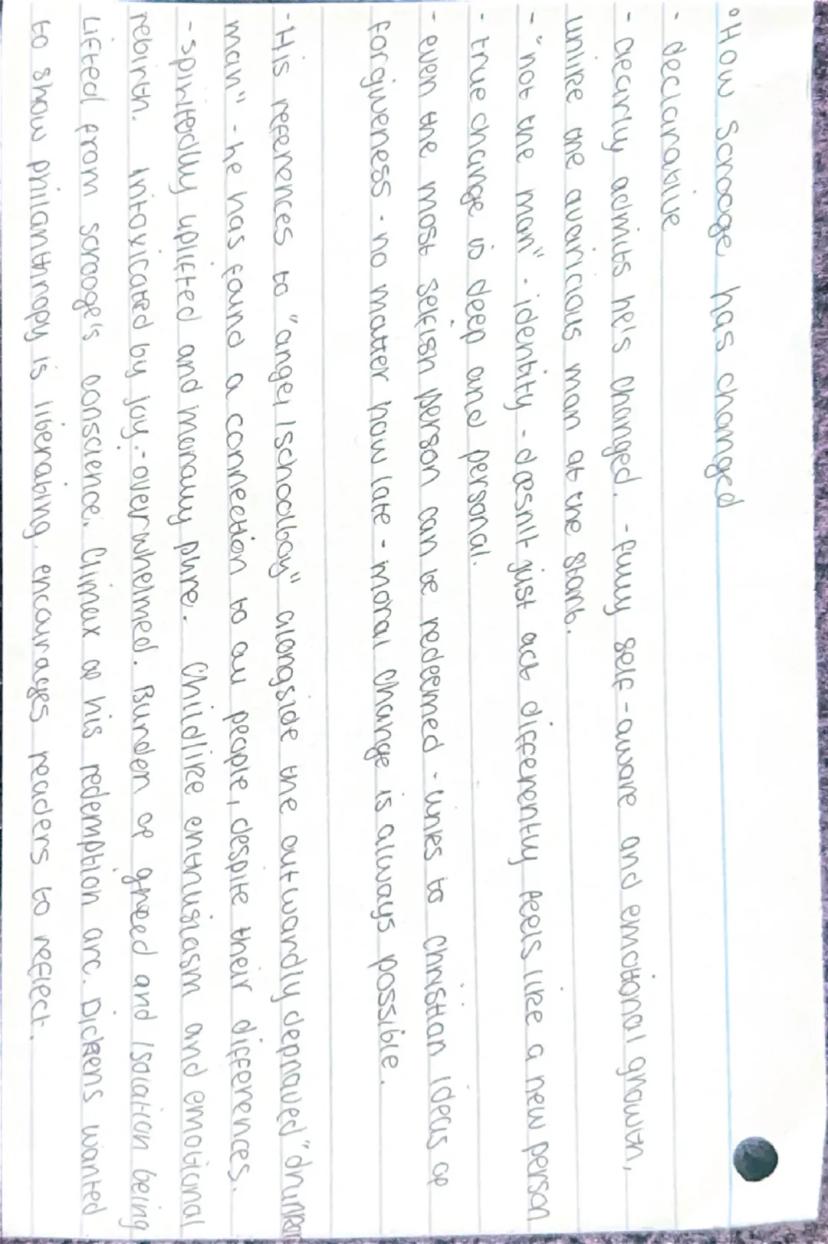 "How Scrooge has changed
- declarative
- clearly admits he's changed. - fully self-aware and emotional growth,
unlike the avaricious man at the start.
- "not the man" - identity - doesn't just act differently feels like a new person
- true change is deep and personal.
- even the most selfish person can be redeemed - links to Christian ideas of
forgiveness - no matter how late - moral change is always possible.
- His references to "angel/schoolboy" alongside the outwardly depraved "drunken
man" - he has found a connection to all people, despite their differences.
- spiritually uplifted and morally pure. Childlike enthusiasm and emotional
rebirth. Intoxicated by joy - overwhelmed. Burden of greed and isolation being
lifted from scrooge's conscience. Climax of his redemption arc. Dickens wanted
to show philanthropy is liberating, encourages readers to reflect.